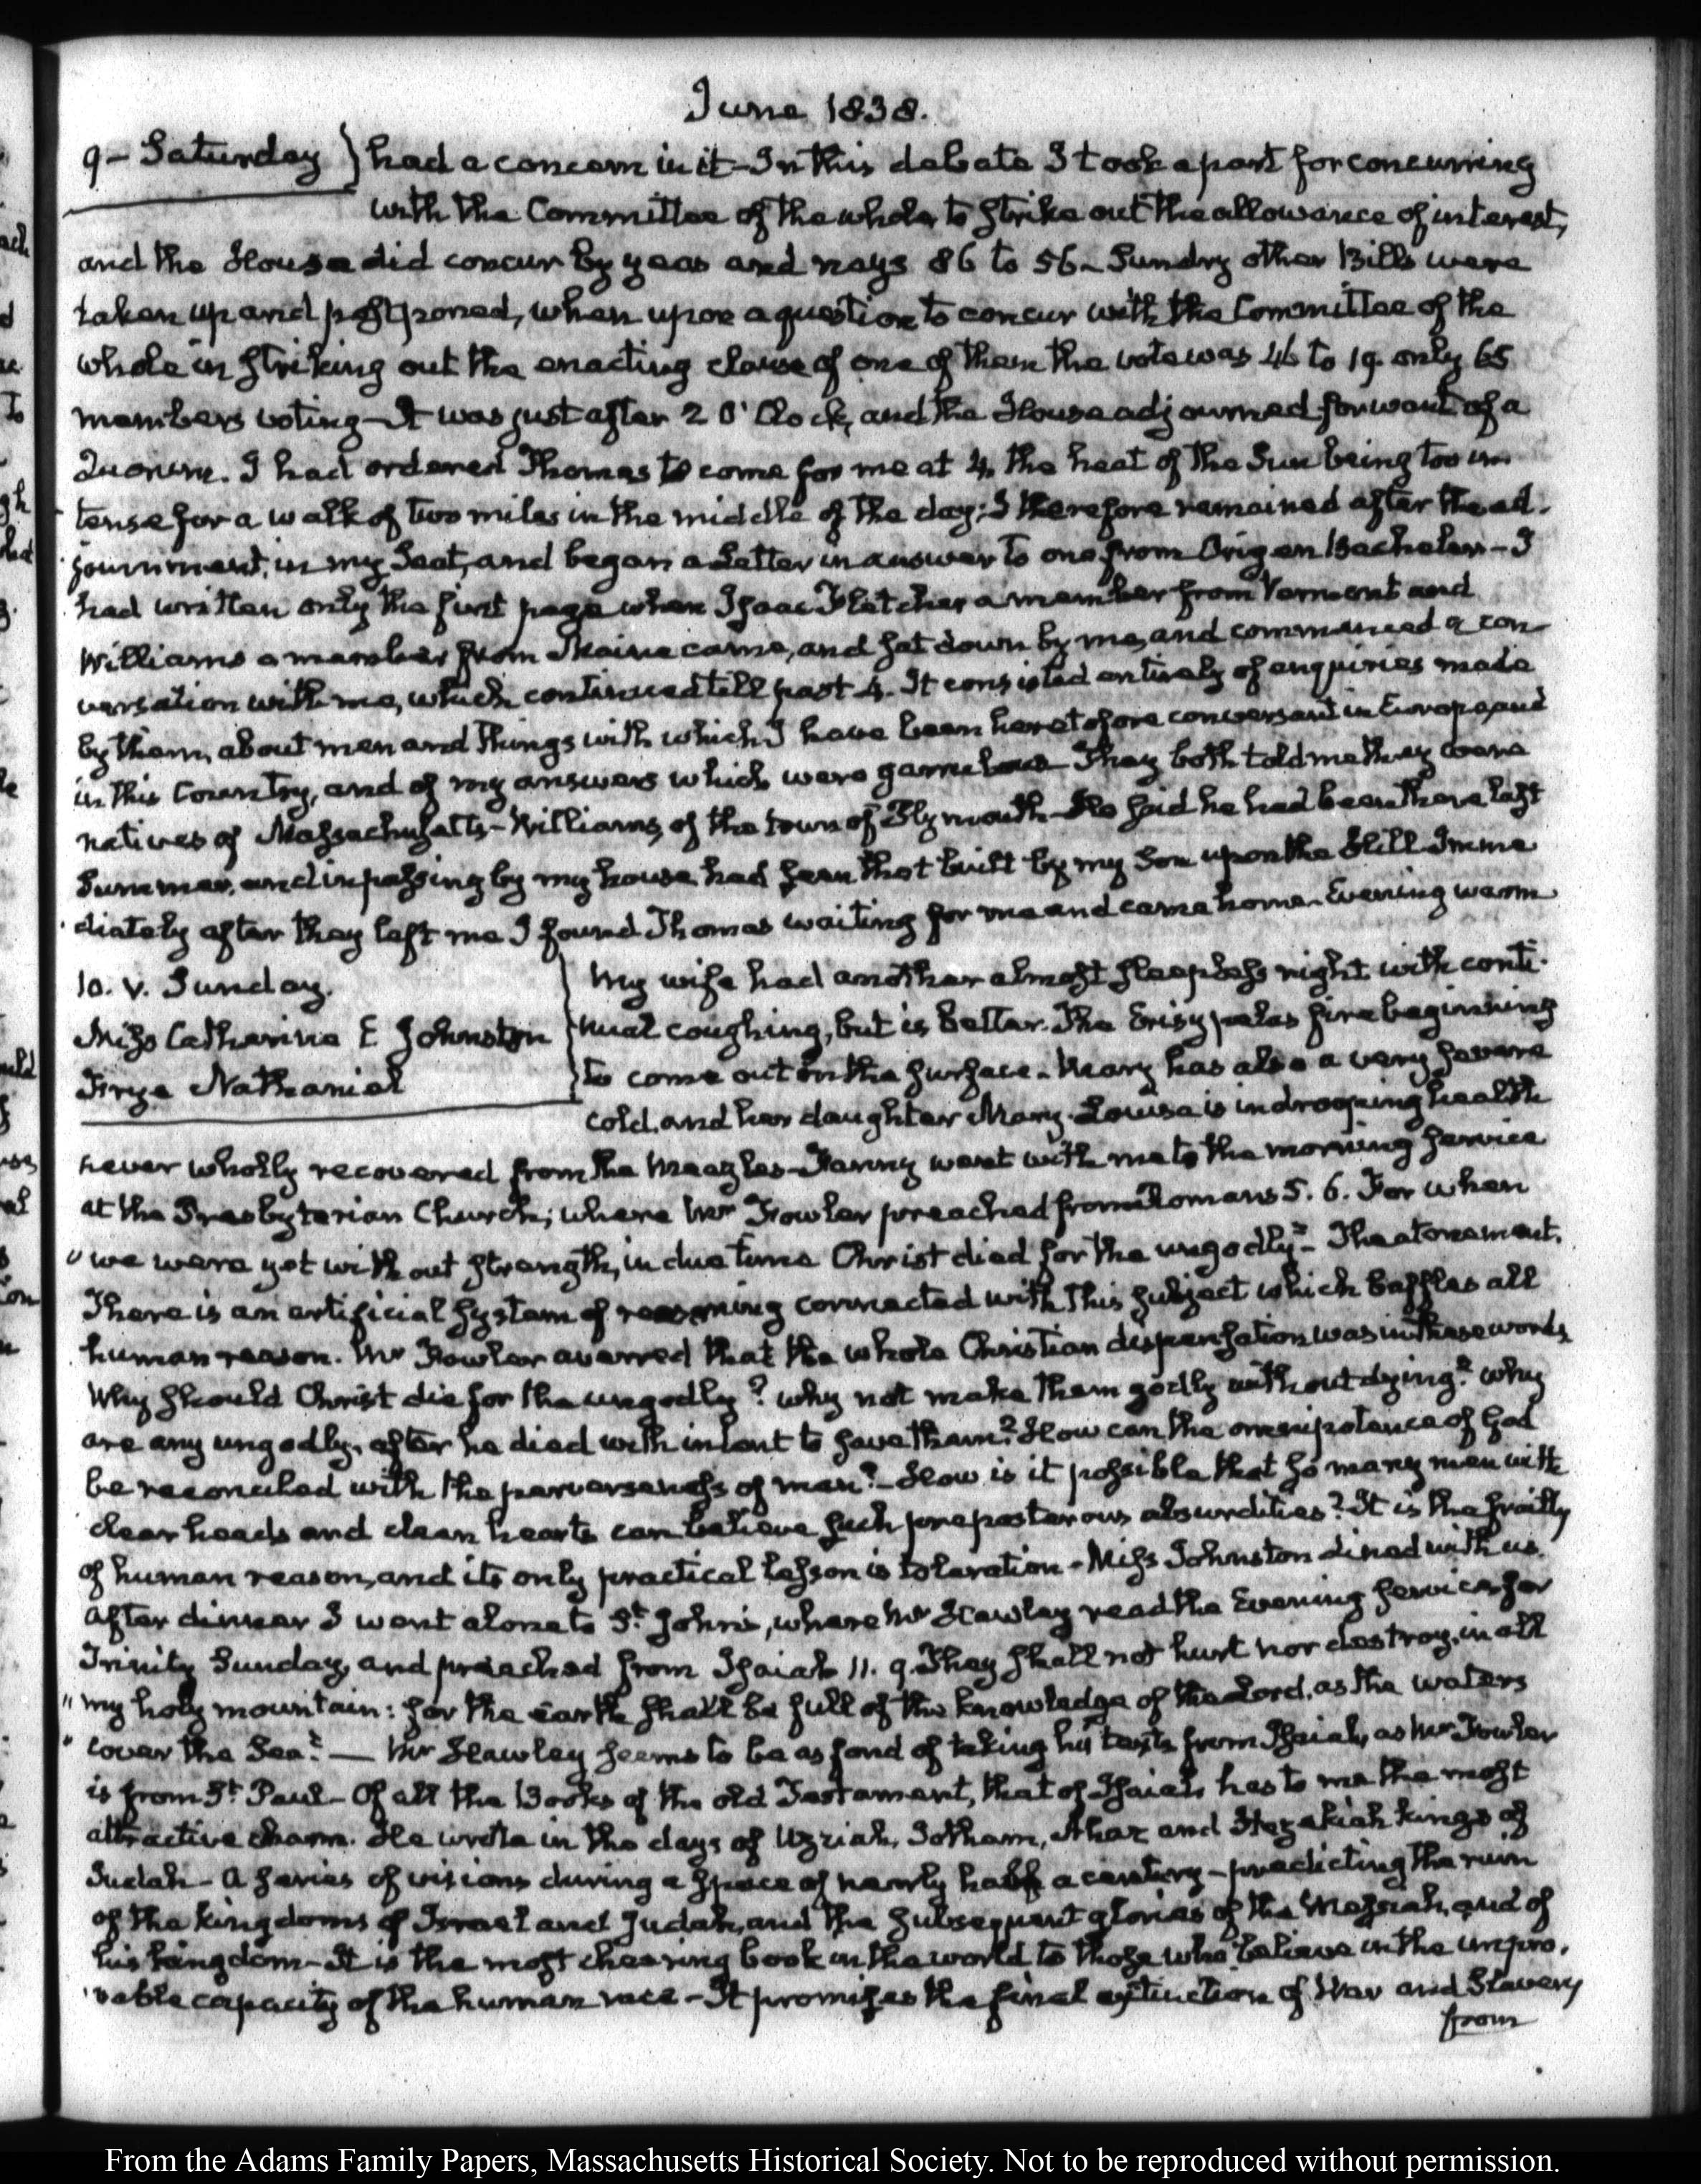 June 1838.
9 – Saturday } had a concern in it – In this debate I took a part for concurring
with the Committee of the whole, to strike out the allowance of interest,
and the House did concur by yeas and nays 86 to 56 – Sundry other Bills were
taken up and postponed, when upon a question to concur with the Committee of the
whole in striking out the enacting clause of one of them the vote was 46 to 19. only 65
members voting – It was just after 2 O'Clock, and the House adjourned for want of a
Quorum. I had ordered Thomas to come for me at 4, the heat of the Sun being too in
tense for a walk of two miles in the middle of the day; I therefore remained after the ad-
journment, in my Seat, and began a Letter in answer to one from Origen Bacheler – I
had written only the first page when Isaac Fletcher a member from Vermont and
Williams a member from Maine came, and sat down by me, and commenced a con-
versation with me, which continued till past 4. It consisted entirely of enquiries made
by them, about men and things with which I have been heretofore conversant in Europe, and
in this Country, and of my answers which were garrulous – They both told me they were
natives of Massachusetts – Williams, of the town of Plymouth – He said he had been there last
Summer, and in passing by my house had seen that built by my Son upon the Hill. Imme
diately after they left me I found Thomas waiting for me and came home. Evening warm
10. V. Sunday.
Miss Catharine E Johnston
Frye Nathaniel
My wife had another almost sleepless night with conti-
nual coughing, but is better. The Erisypelas fire beginning
to come out on the surface – Mary has also a very severe
cold, and her daughter Mary-Louisa is in drooping health
never wholly recovered from the Meazles – Fanny went with me to the morning service
at the Presbyterian Church; where Mr Fowler preached from Romans 5. 6. For when
"we were yet without strength, in due time Christ died for the ungodly" – The atonement.
There is an artificial system of reasoning connected with this subject which baffles all
human reason. Mr Fowler averred that the whole Christian dispensation was in these words
Why should Christ die for the ungodly? why not make them godly without dying? why
are any ungodly, after he died with intent to save them? How can the omnipotence of God
be reconciled with the perverseness of man? – How is it possible that so many men with
clear heads and clean hearts can believe such preposterous absurdities? It is the frailty
of human reason, and its only practical lesson is toleration – Miss Johnston dined with us.
After dinner I went alone to St. John's, where Mr Hawley read the Evening service for
Trinity Sunday, and preached from Isaiah 11. 9. They shall not hurt nor destroy, in all
"my holy mountain: for the earth shall be full of the knowledge of the Lord, as the waters
"cover the Sea" — Mr Hawley seems to be as fond of taking his texts from Isaiah, as Mr Fowler
is from St. Paul – Of all the Books of the old Testament, that of Isaiah has to me the most
attractive charm. He wrote in the days of Uzziah, Jotham, Ahaz and Hezekiah kings of
Judah – a series of visions during a space of nearly half a century – predicting the ruin
of the kingdoms of Israel and Judah, and the subsequent glories of the Messiah, and of
his kingdom – It is the most cheering book in the world to those who believe in the impro-
vable capacity of the human race – It promises the final extinction of War and Slavery
from
From the Adams Family Papers, Massachusetts Historical Society. Not to be reproduced without permission.